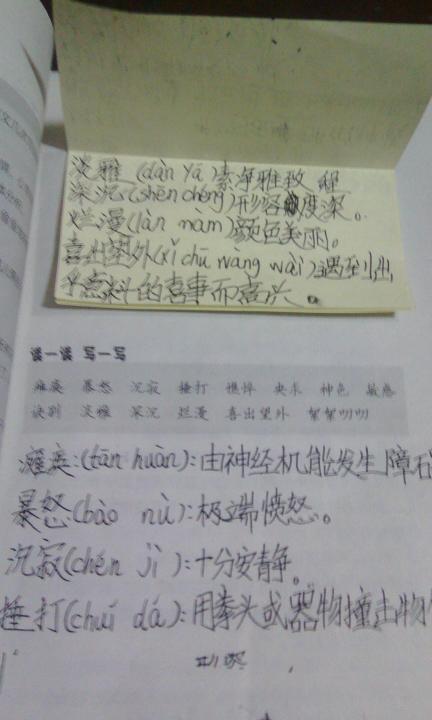 淡雅(dàn yǎ)素净雅致 程
深沉(shēn chéng)形容度深。
烂漫(làn màn)颜色美丽。
喜出望外(xǐ chū wàng wài)遇到出
乎意料的喜事而高兴。
读一读 写一写
瘫痪 暴怒 沉寂 捶打 憔悴 央求 神色 敏感
诀别 淡雅 深沉 烂漫 喜出望外 絮絮叨叨
瘫痪:(tān huàn):由神经机能发生障
暴怒(bào nù):极端愤怒。
沉寂(chén jì):十分安静。
捶打(chuí dá):用拳头或器物撞击物